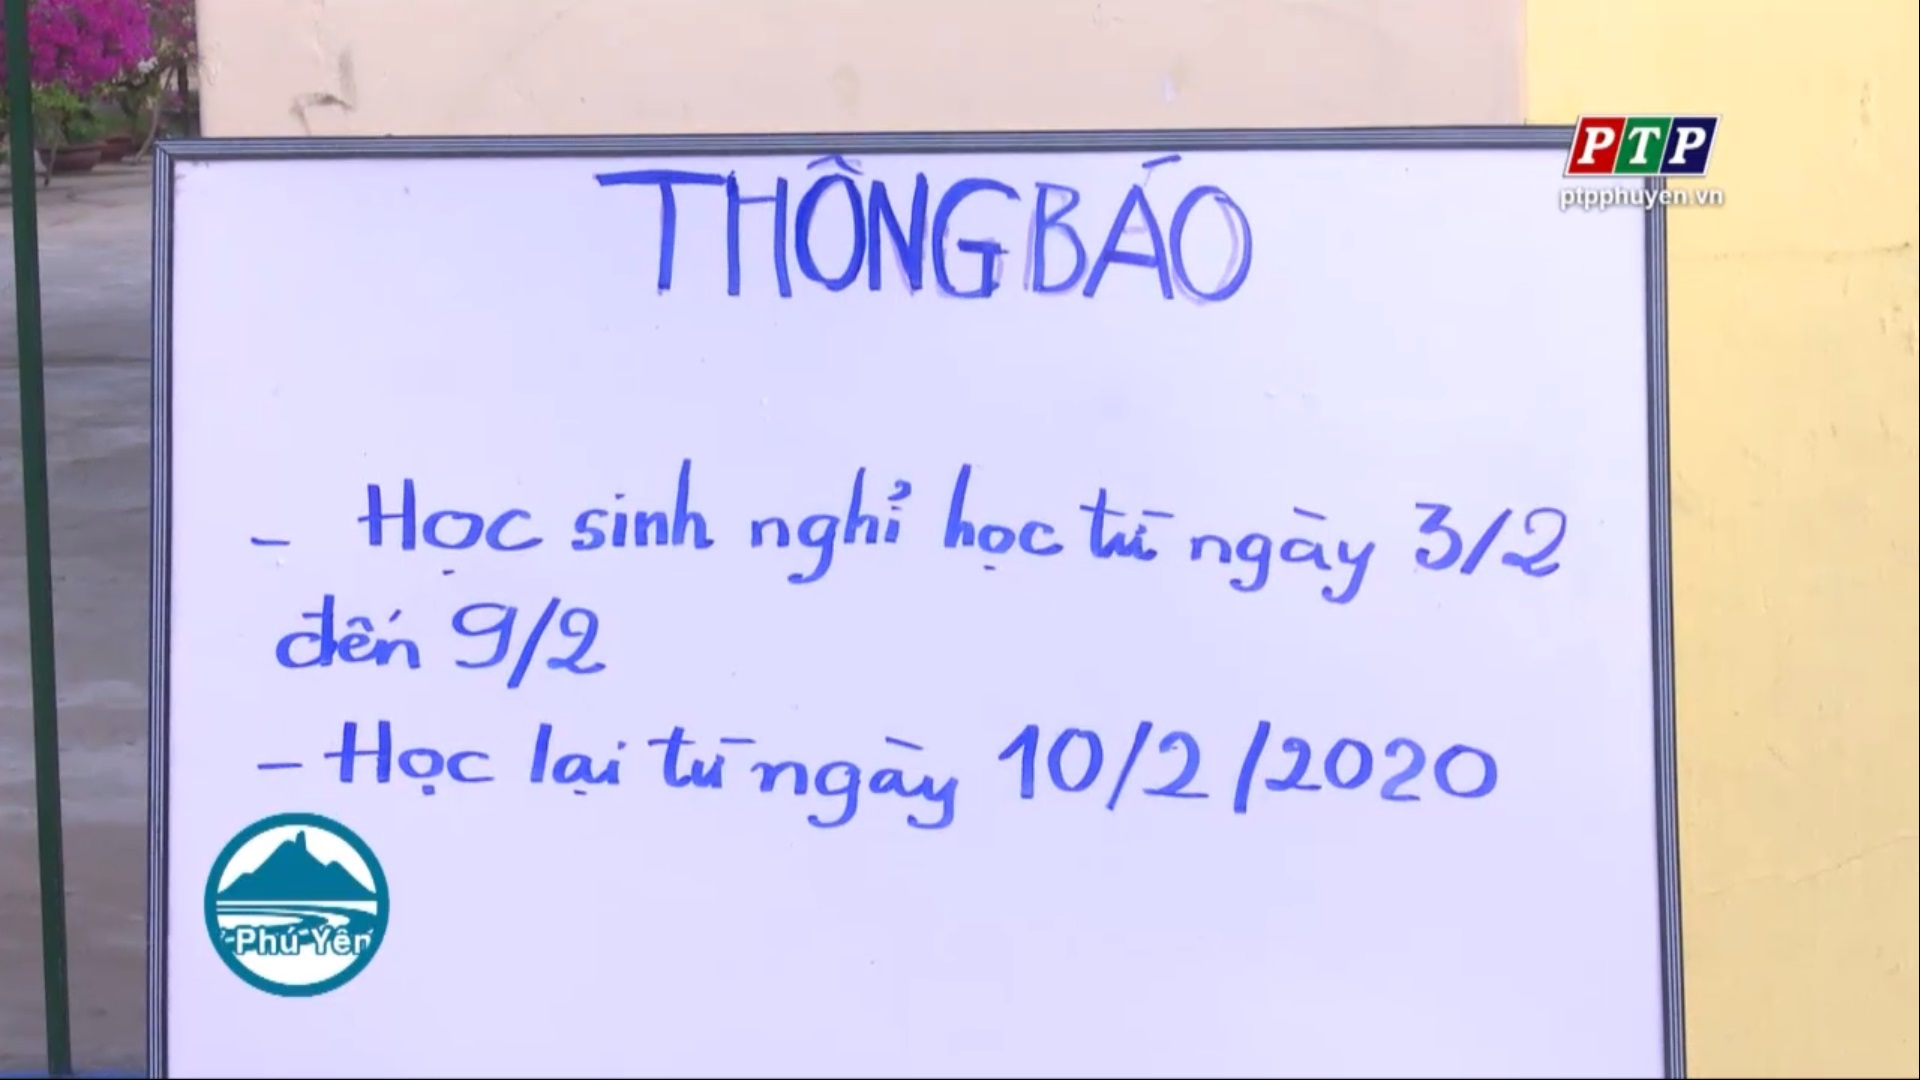 PTP
ptpphuyen.vn
THÔNG BÁO
- Học sinh nghỉ học từ ngày 3/2
đến 9/2
- Học lại từ ngày 10/2/2020
Phú Yên